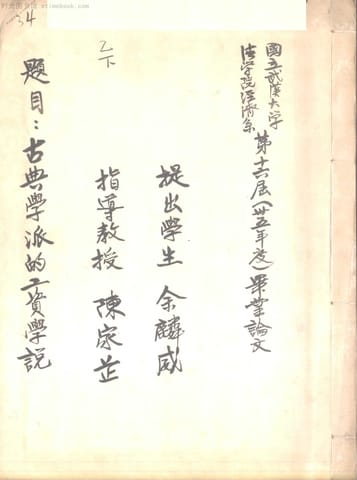 國立武漢大學
法學院經濟系
第十六屆(卅五年度)畢業論文
提出學生 余麟威
指導教授 陳家芷
乙下
題目:古典學派的工資學説
34